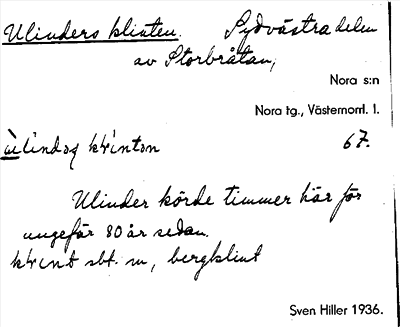 Ulinders klinten. Sydvästra delen
av Storbråtan,
Nora s:n
Nora tg., Västernorrl. l.
67.
Ulinder körde timmer här för
ungefär 80 år sedan.
sbt. m, bergklint
Sven Hiller 1936.